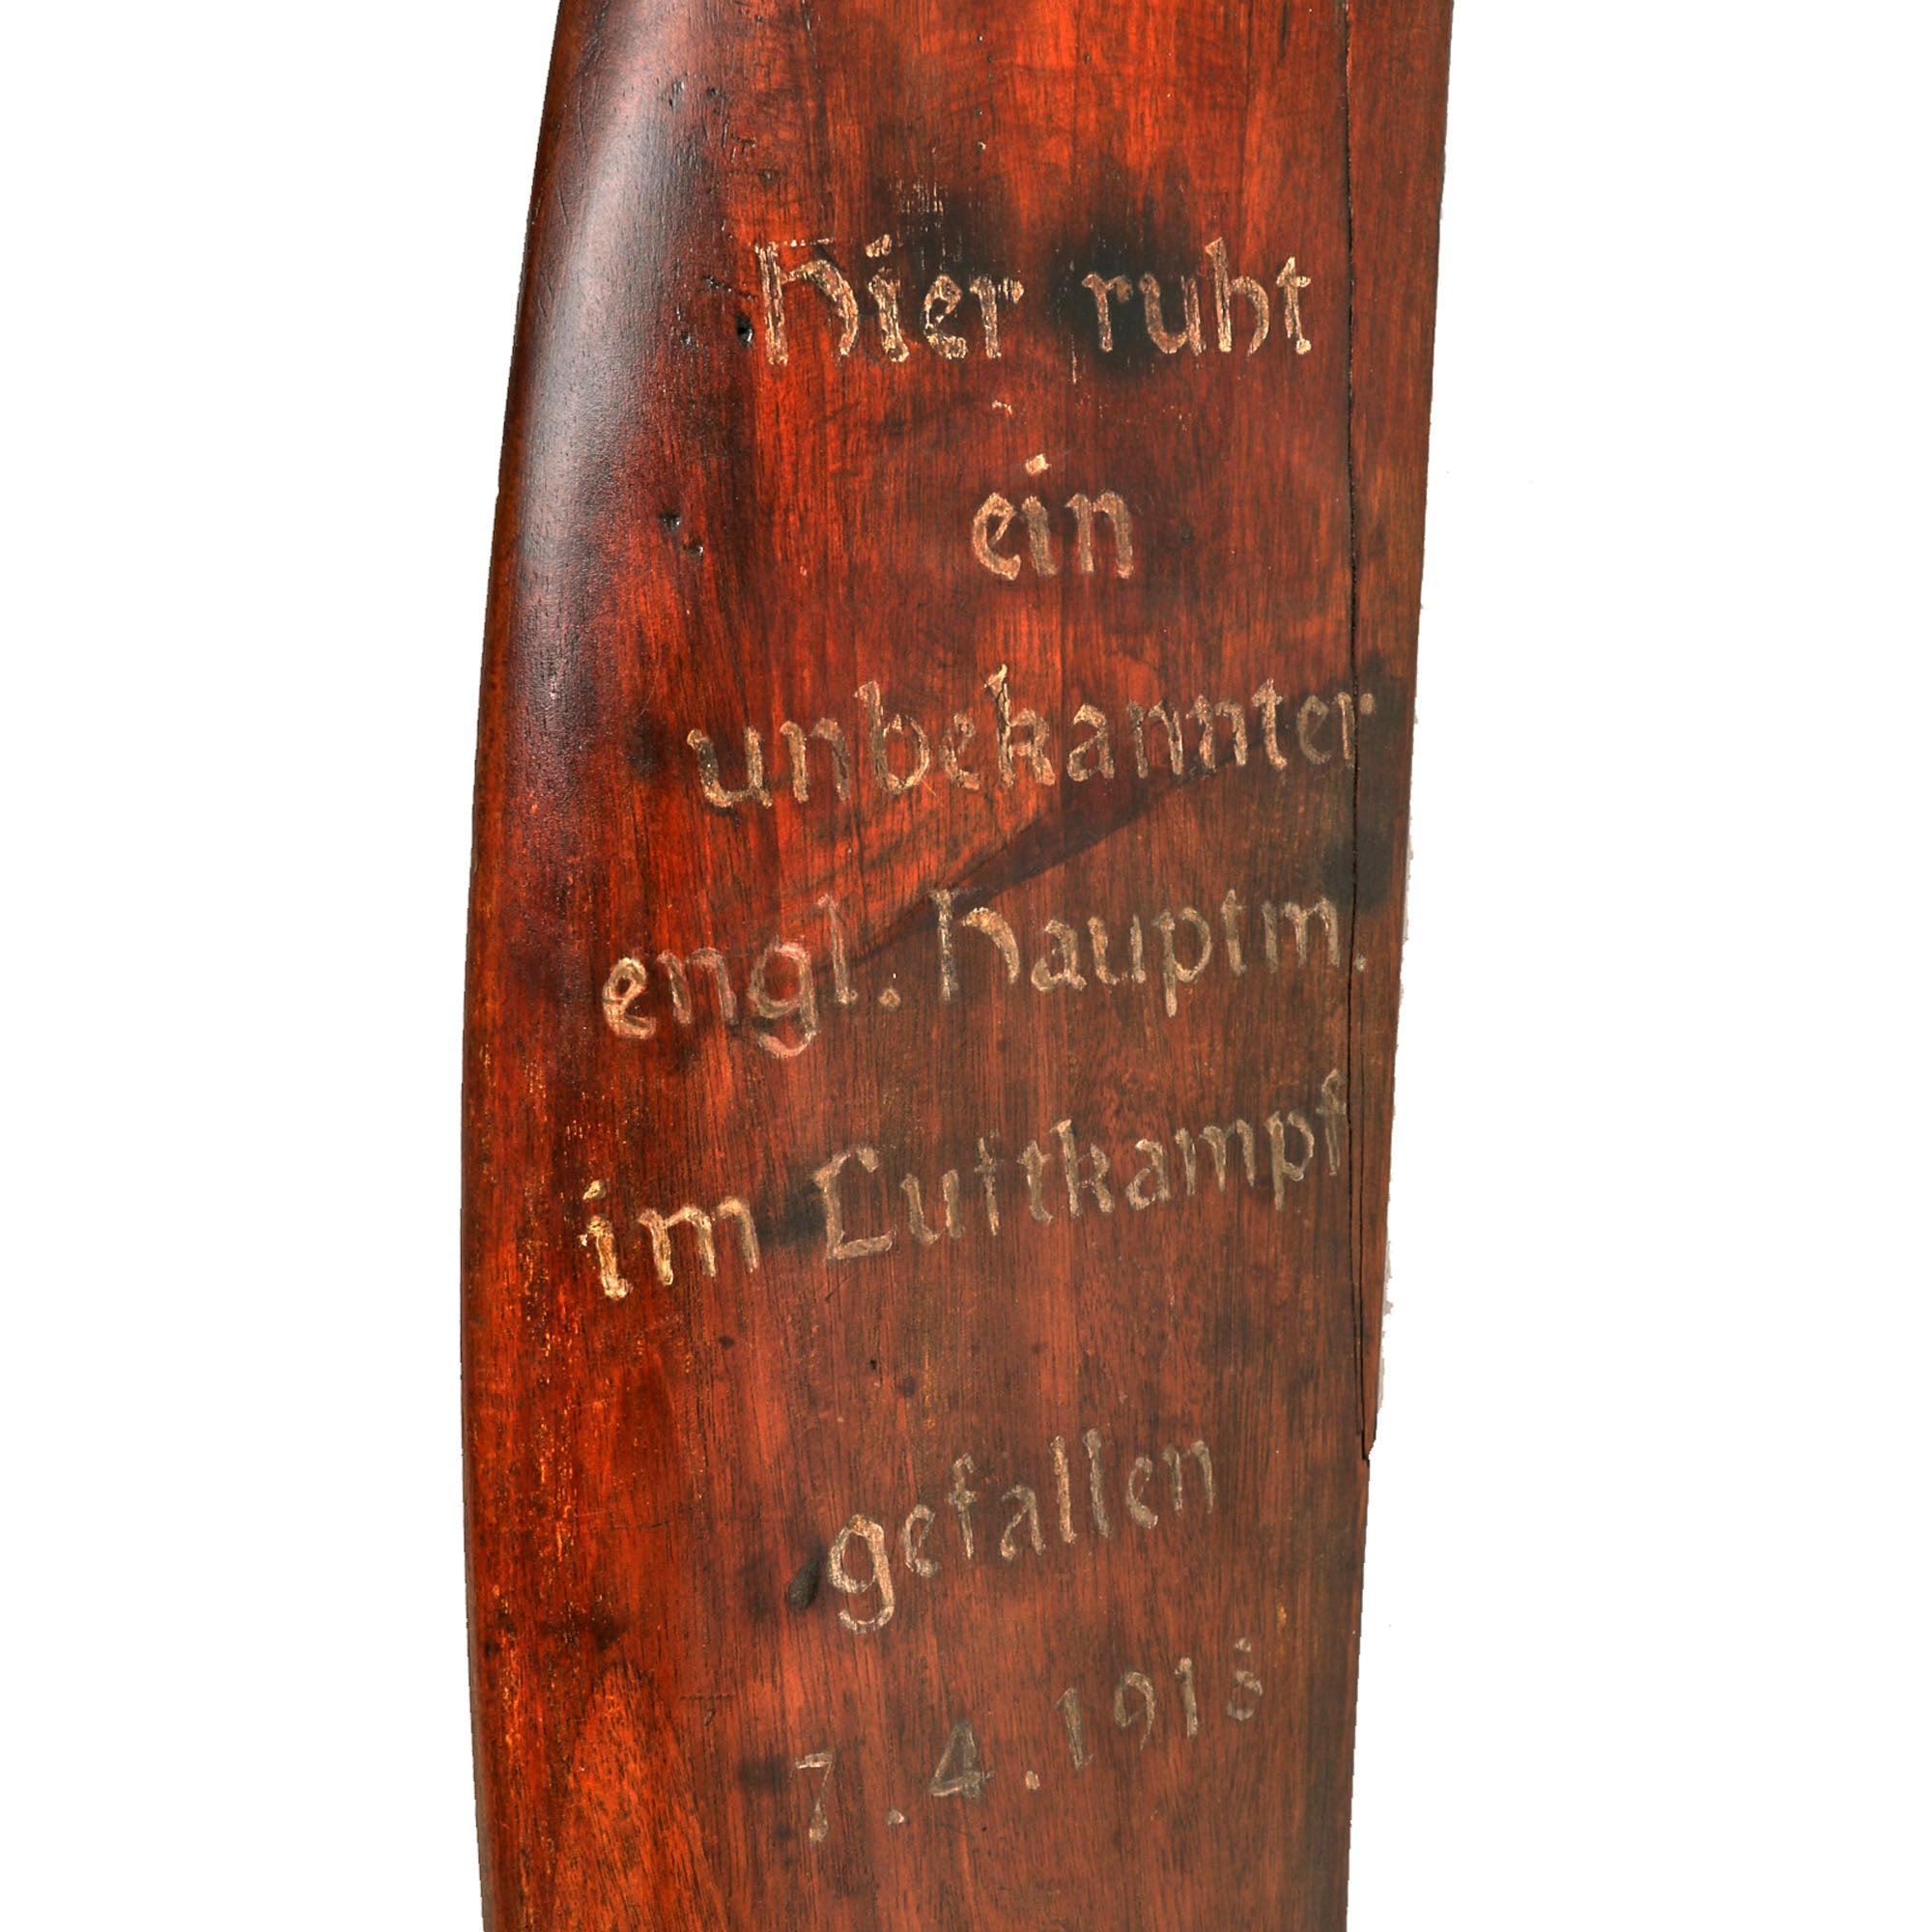 Hier ruht
ein
unbekannter
engl. Hauptm.
im Luftkampf
gefallen
7.4.1918